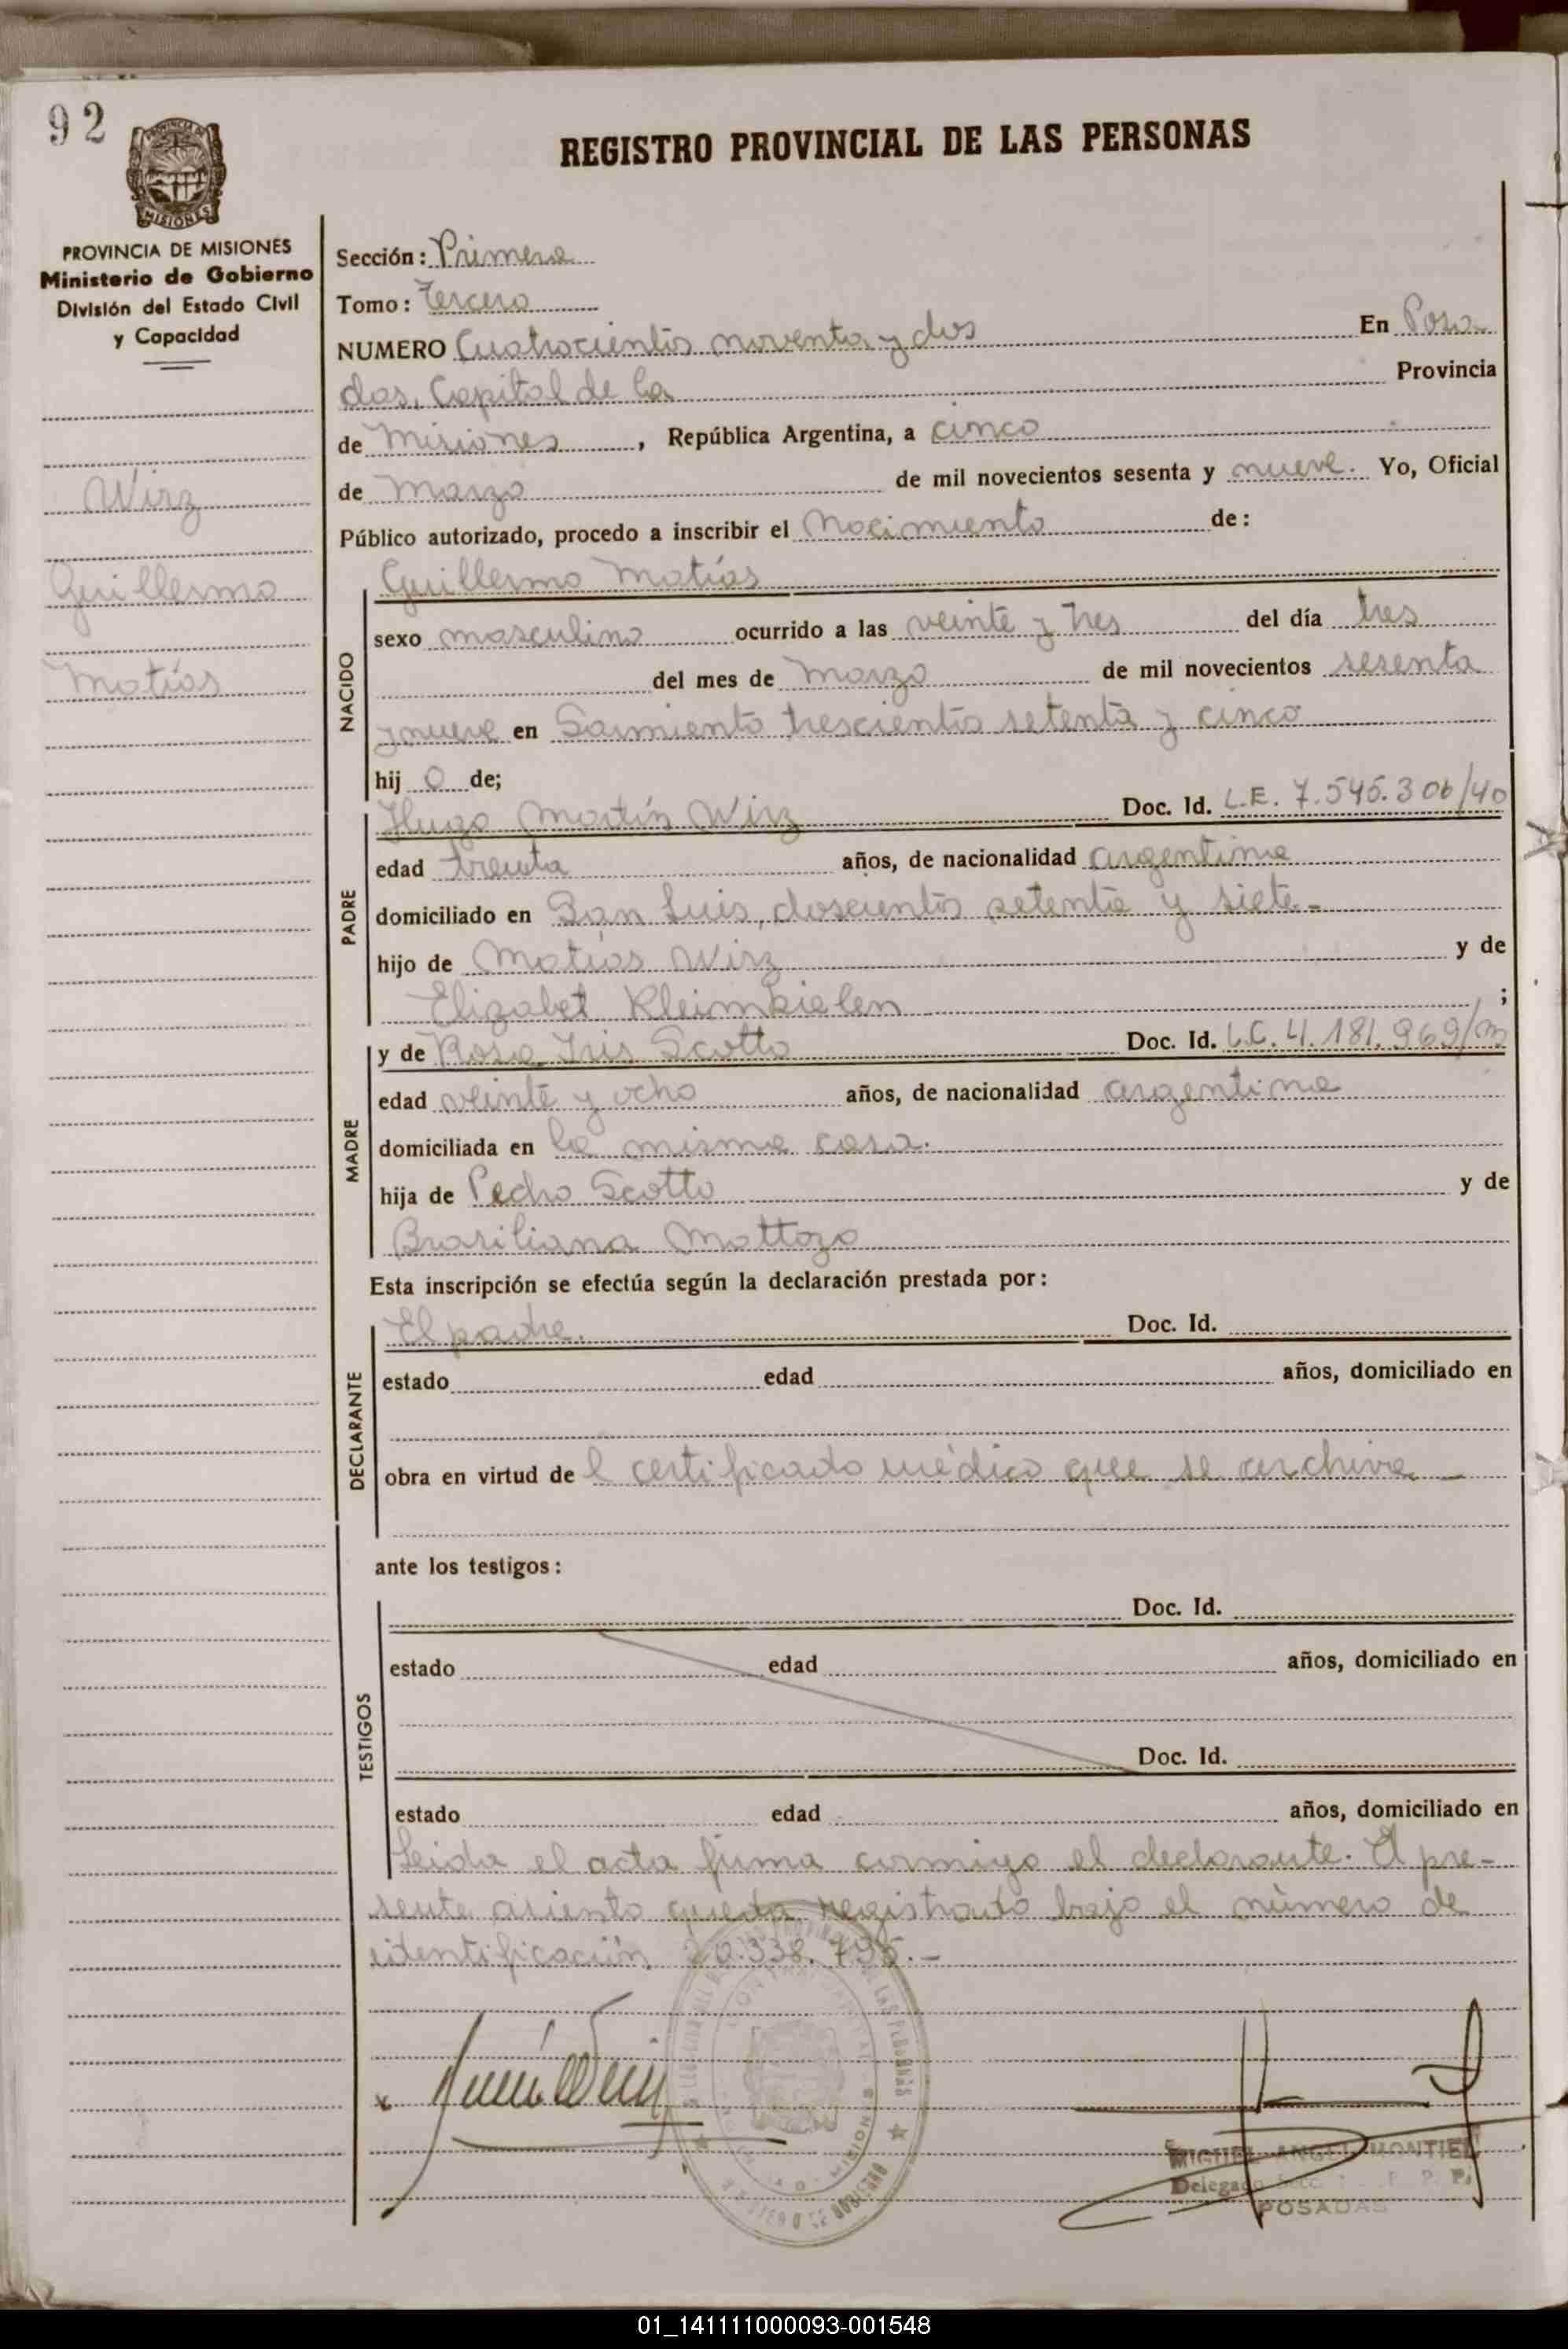 92
PROVINCIA DE
MISIONES
REGISTRO PROVINCIAL DE LAS PERSONAS
PROVINCIA DE MISIONES
Ministerio de Gobierno
División del Estado Civil
y Capacidad
Wirz
Guillermo
Matías
Sección: Primera
Tomo: Tercero
NUMERO Cuatrocientos noventa y dos En Posa
das, Capital de la Provincia
de Misiones, República Argentina, a cinco
de Marzo de mil novecientos sesenta y nueve. Yo, Oficial
Público autorizado, procedo a inscribir el Nacimiento de:
NACIDO
Guillermo Matías
sexo masculino ocurrido a las veinte y tres del día tres
del mes de Marzo de mil novecientos sesenta
y nueve en Sarmiento trescientos setenta y cinco
hij o de;
PADRE
Hugo Martín Wirz Doc. Id. L.E. 7.545.306/40
edad treinta años, de nacionalidad argentina
domiciliado en San Luis, doscientos setenta y siete-
hijo de Matías Wirz y de
Elizabet ;
MADRE
y de Rosa Iris Scotto Doc. Id. L.C. 4.181.969/m
edad veinte y ocho años, de nacionalidad argentina
domiciliada en la misma casa.
hija de Pedro Scotto y de
Brasiliana Mattozo
Esta inscripción se efectúa según la declaración prestada por:
DECLARANTE
El padre. Doc. Id.
estado edad años, domiciliado en
obra en virtud de l certificado médico que se archiva -
ante los testigos:
TESTIGOS
Doc. Id.
estado edad años, domiciliado en
Doc. Id.
estado edad años, domiciliado en
Leida el acta firma conmigo el declarante. El pre-
sente asiento queda registrado bajo el número de
identificación 20.338.795.-
MIGUEL ANGEL MONTIEL
Delegado
POSADAS
01_141111000093-001548